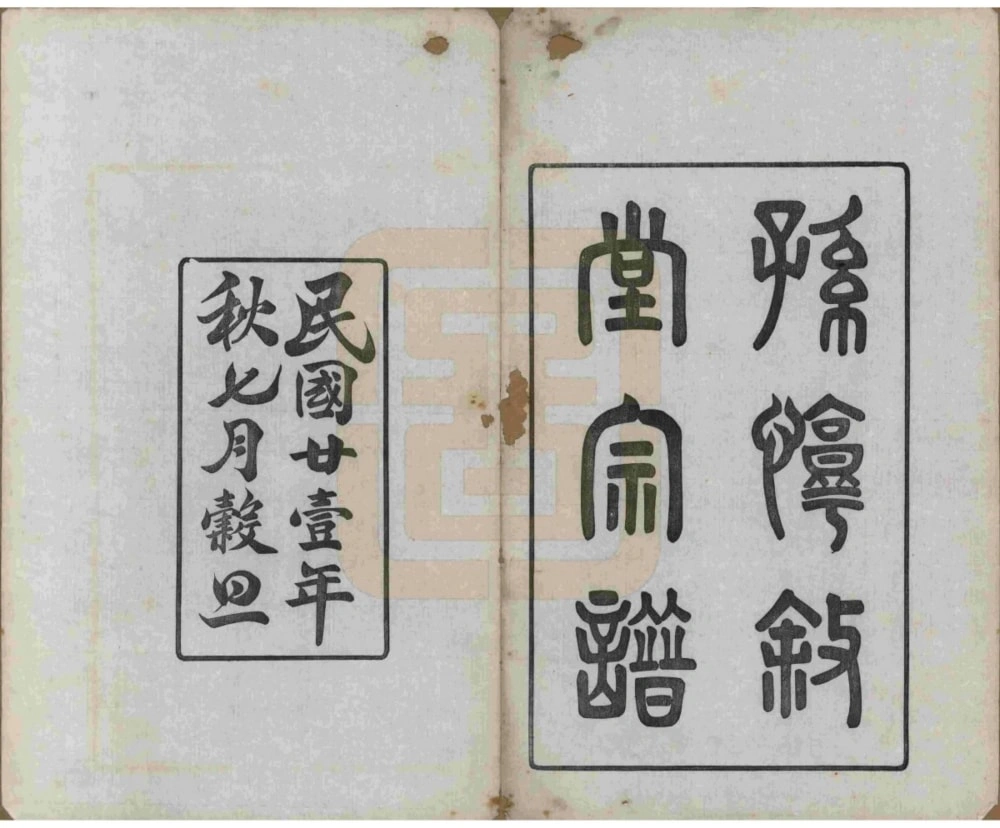 孫惇敘
堂宗譜
民國廿壹年
秋七月穀旦